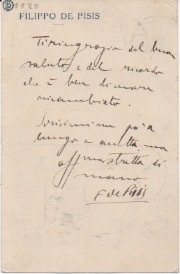 1920
FILIPPO DE PISIS
Ti ringrazio del buon
saluto e del ricordo
che è ben di cuore
ricambiato.
Scrivimi più a
lungo e
affma stretta di
mano
F de Pisis